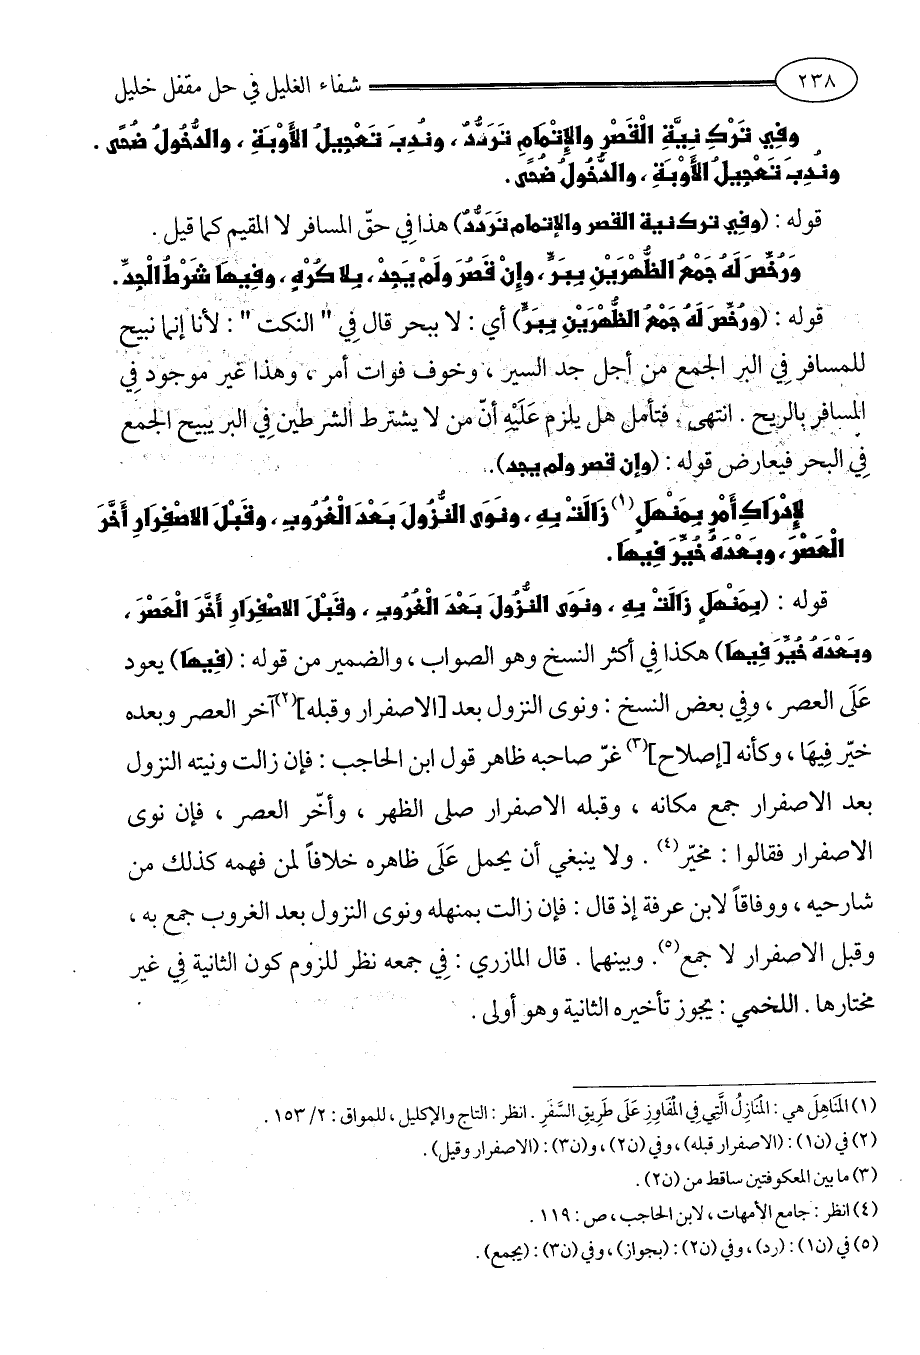 ٢٣٨ شفاء الغليل في حل مقفل خليل
وفِي تَرْكِ نِيَّةِ الْقَصْرِ والإِتْمَامِ تَرَدُّدٌ ، ونُدِبَ تَعْجِيلُ الأَوْبَةِ ، والدُّخُولُ ضُحًى .
ونُدِبَ تَعْجِيلُ الأَوْبَةِ ، والدُّخُولُ ضُحًى .
قوله : (وفِي ترك نية القصر والإتمام تَرَدُّدٌ) هذا فِي حقّ المسافر لا المقيم كما قيل .
ورُخِّصَ لَهُ جَمْعُ الظُّهْرَيْنِ بِبَرٍّ ، وإِنْ قَصُرَ ولَمْ يَجِدْ ، بِلا كُرْهٍ ، وفِيهَا شَرْطُ الْجِدِّ .
قوله : (ورُخِّصَ لَهُ جَمْعُ الظُّهْرَيْنِ بِبَرٍّ) أي : لا ببحر قال فِي " النكت " : لأنا إنما نبيح
للمسافر فِي البر الجمع من أجل جد السير ، وخوف فوات أمر ، وهذا غير موجود فِي
المسافر بالريح . انتهى . فتأمل هل يلزم عَلَيْهِ أنّ من لا يشترط الشرطين فِي البر يبيح الجمع
فِي البحر فيعارض قوله : (وإن قصر ولم يجد) .
لإِدْرَاكِ أَمْرٍ بِمَنْهَلٍ (١) زَالَتْ بِهِ ، ونَوَى النُّزُولَ بَعْدَ الْغُرُوبِ ، وقَبْلَ الاصْفِرَارِ أَخَّرَ
الْعَصْرَ ، وبَعْدَهُ خُيِّرَ فِيهَا .
قوله : (بِمَنْهَلٍ زَالَتْ بِهِ ، ونَوَى النُّزُولَ بَعْدَ الْغُرُوبِ ، وقَبْلَ الاصْفِرَارِ أَخَّرَ الْعَصْرَ ،
وبَعْدَهُ خُيِّرَ فِيهَا) هكذا فِي أكثر النسخ وهو الصواب ، والضمير من قوله : (فِيهَا) يعود
عَلَى العصر ، وفِي بعض النسخ : ونوى النزول بعد [الاصفرار وقبله] (٢) آخر العصر وبعده
خيّر فِيهَا ، وكأنه [إصلاح] (٣) غرّ صاحبه ظاهر قول ابن الحاجب : فإن زالت ونيته النزول
بعد الاصفرار جمع مكانه ، وقبله الاصفرار صلى الظهر ، وأخّر العصر ، فإن نوى
الاصفرار فقالوا : مخيّر (٤) . ولا ينبغي أن يحمل عَلَى ظاهره خلافاً لمن فهمه كذلك من
شارحيه ، ووفاقاً لابن عرفة إذ قال : فإن زالت بمنهله ونوى النزول بعد الغروب جمع به ،
وقبل الاصفرار لا جمع (٥) . وبينهما . قال المازري : فِي جمعه نظر للزوم كون الثانية فِي غير
مختارها . اللخمي : يجوز تأخيره الثانية وهو أولى .
(١) المَنَاهِلَ هي : المَنَازِلُ الَّتِي فِي المَفَاوِزِ عَلَى طَرِيقِ السَّفَرِ . انظر : التاج والإكليل ، للمواق : ٢/ ١٥٣ .
(٢) في (ن١) : (الاصفرار قبله) ، وفي (ن٢) ، و(ن٣) : (الاصفرار وقيل) .
(٣) ما بين المعكوفتين ساقط من (ن٢) .
(٤) انظر : جامع الأمهات ، لابن الحاجب ، ص : ١١٩ .
(٥) في (ن١) : (رد) ، وفي (ن٢) : (بجواز) ، وفي (ن٣) : (يجمع) .